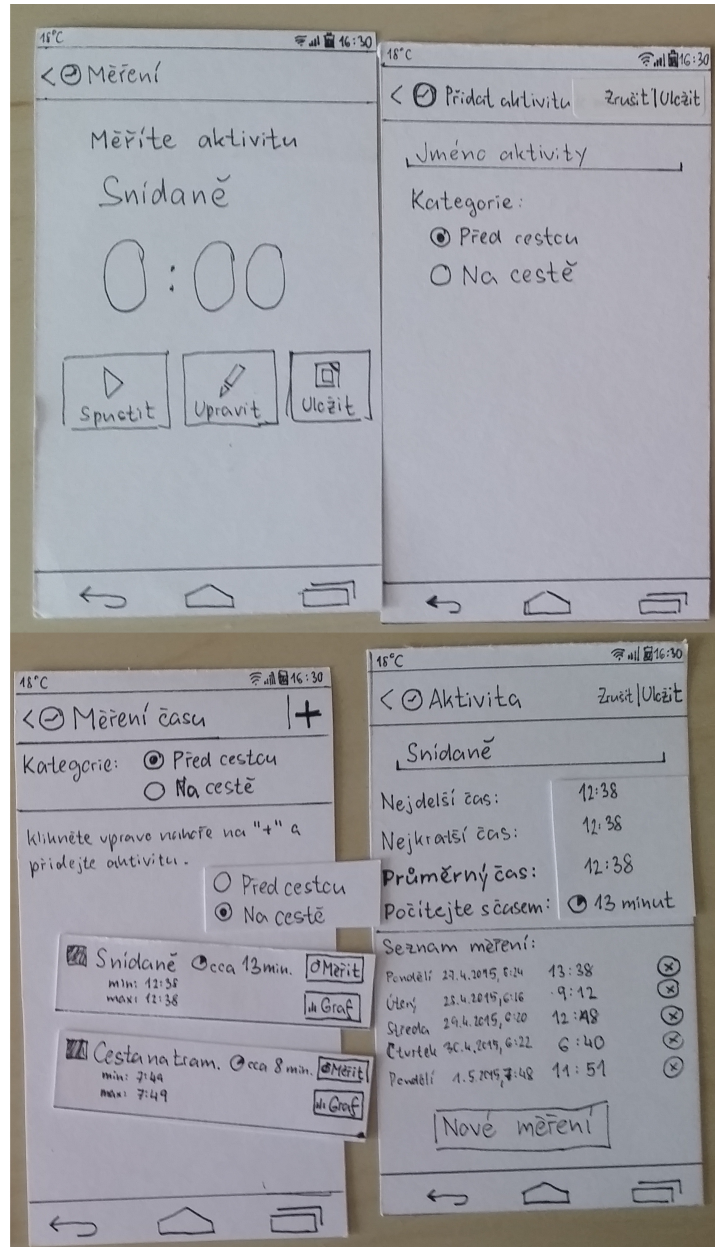 18°C 16:30
< Měření
Měříte aktivitu
Snídaně
0:00
Spustit Upravit Uložit
18°C 16:30
< Přidat aktivitu Zrušit|Uložit
Jméno aktivity
Kategorie:
Před cestou
Na cestě
18°C 16:30
< Měření času | +
Kategorie: Před cestou
Na cestě
Klikněte vpravo nahoře na "+" a
přidejte aktivitu.
Před cestou
Na cestě
Snídaně cca 13 min. Měřit
min: 12:38
max: 12:38
Graf
Cesta na tram. cca 8 min. Měřit
min: 7:49
max: 7:49
Graf
18°C 16:30
< Aktivita Zrušit|Uložit
Snídaně
Nejdelší čas: 12:38
Nejkratší čas: 12:38
Průměrný čas: 12:38
Počítejte s časem: 13 minut
Seznam měření:
Pondělí 27.4.2015, 6:24 13:38
Úterý 28.4.2015, 6:16 9:12
Středa 29.4.2015, 6:20 12:48
Čtvrtek 30.4.2015, 6:22 6:40
Pondělí 1.5.2015, 7:48 11:51
Nové měření